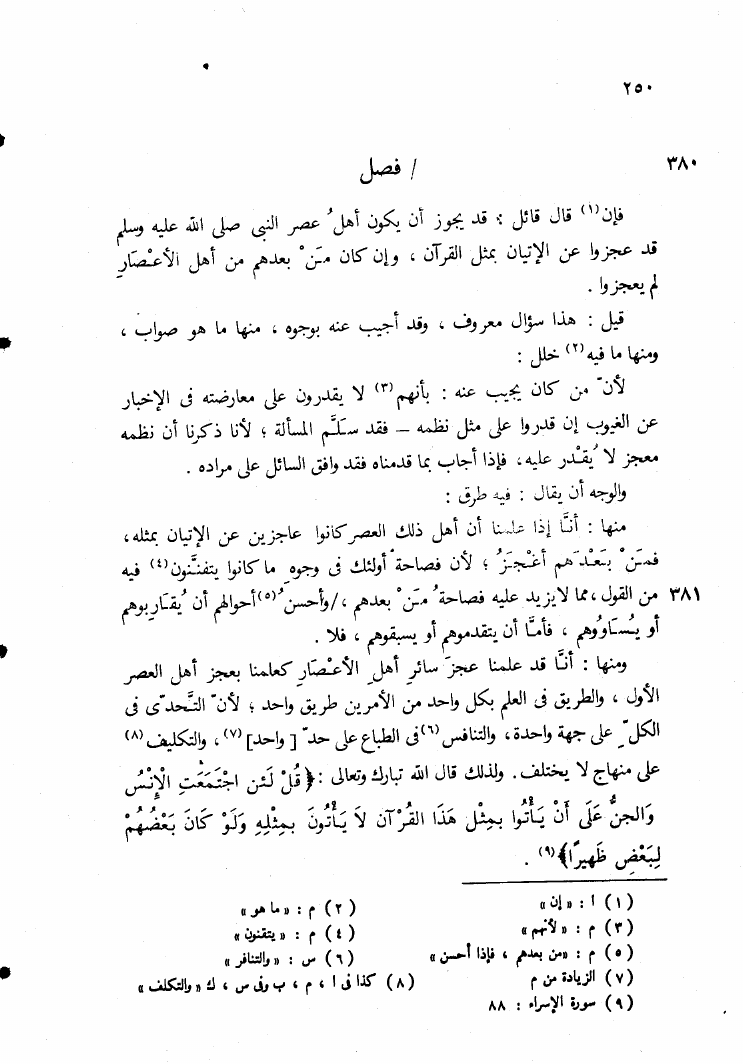 ٢٥٠
٣٨٠
/ فصل
فإن(١) قال قائل : قد يجوز أن يكون أهلُ عصر النبى صلى الله عليه وسلم
قد عجزوا عن الإتيان بمثل القرآن ، وإن كان مَنْ بعدهم من أهل الأعْصَارِ
لم يعجزوا .
قيل : هذا سؤال معروف ، وقد أجيب عنه بوجوه ، منها ما هو صواب ،
ومنها ما فيه(٢) خلل :
لأنّ من كان يجيب عنه : بأنهم(٣) لا يقدرون على معارضته فى الإخبار
عن الغيوب إن قدروا على مثل نظمه – فقد سَلَّم المسألة ؛ لأنا ذكرنا أن نظمه
معجز لا يُقْدر عليه، فإذا أجاب بما قدمناه فقد وافق السائل على مراده .
والوجه أن يقال : فيه طرق :
منها : أنَّا إذا علمنا أن أهل ذلك العصر كانوا عاجزين عن الإتيان بمثله،
فمَنْ بَعْدَهم أعْجَزُ ؛ لأن فصاحةَ أولئك فى وجوهِ ما كانوا يتفنَّنون(٤) فيه
من القول، مما لا يزيد عليه فصاحةُ مَنْ بعدهم ،/وأحسنُ(٥) أحوالهم أن يُقَارِبوهم ٣٨١
أو يُسَاوُوهم ، فأمَّا أن يتقدموهم أو يسبقوهم ، فلا .
ومنها : أنَّا قد علمنا عجزَ سائرِ أهلِ الأعْصَارِ كعلمنا بعجز أهل العصر
الأول ، والطريق فى العلم بكل واحد من الأمرين طريق واحد ؛ لأنّ التَّحدّى فى
الكلّ على جهة واحدة ، والتنافس(٦) فى الطباع على حدّ [ واحد](٧) ، والتكليف(٨)
على منهاج لا يختلف. ولذلك قال الله تبارك وتعالى : ﴿ قُلْ لَئن اجْتَمَعَتِ الْإنْسُ
وَالجِنُّ عَلَى أَنْ يَأْتُوا بِمِثْلِ هَذَا القُرْآن لاَ يَأْتُونَ بِمِثْلِهِ وَلَوْ كَانَ بَعْضُهُمْ
لِبَعْضٍ ظَهِيرًا﴾(٩) .
(١) ا : «إن» (٢) م : «ما هو»
(٣) م : «لأنهم» (٤) م : «يتقنون»
(٥) م : «من بعدهم ، فإذا أحسن» (٦) س : «والتنافر»
(٧) الزيادة من م (٨) كذا فى ا ، م ، ب وفى س ، ك «والتكلف»
(٩) سورة الإسراء : ٨٨